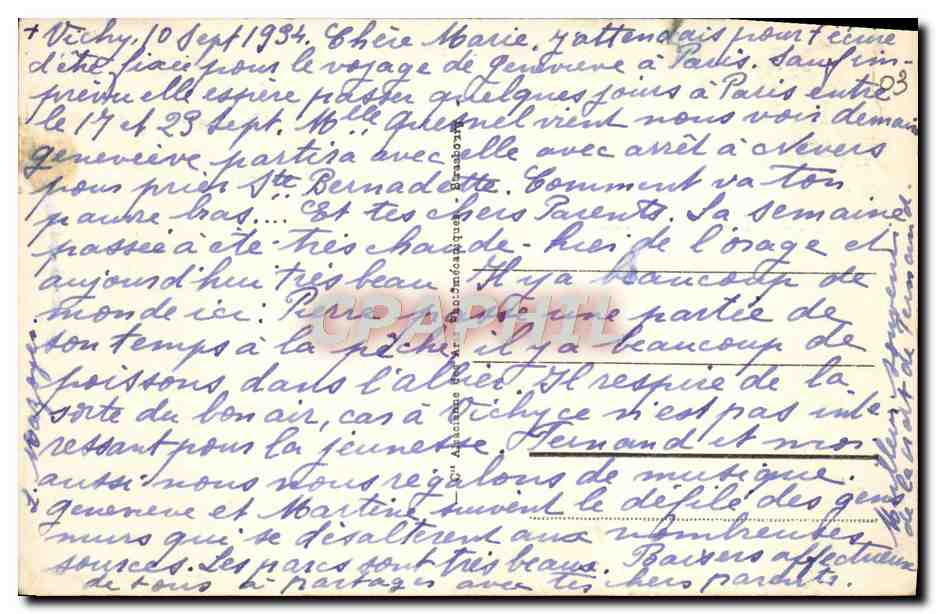 + Vichy, 10 Sept 1934. Chère Marie, j'attendais pour t'écrire
d'être fixée pour le voyage de Geneviève à Paris. Sauf im-
prévu elle espère passer quelques jours à Paris entre
le 17 et 23 Sept. Mlle Quesnel vient nous voir demain
Geneviève partira avec elle avec arrêt à Nevers
pour prier Ste Bernadette. Comment va ton
pauvre bras... Et tes chers Parents. La semaine
passée à été très chaude - hier de l'orage et
aujourd'hui très beau. Il y a beaucoup de
monde ici. Pierre passe une partie de
son temps à la pêche, il y a beaucoup de
poissons dans l'allier. Il respire de la
sorte du bon air, car à Vichy ce n'est pas inté
ressant pour la jeunesse. Fernand et moi
aussi nous nous régalons de musique.
Geneviève et Martine suivent le défilé des gens
murs qui se désaltèrent aux nombreuses
sources. Les parcs sont très beaux. Baisers affectueux
de tous à partager avec tes chers parents.
Meilleurs
de la part de Fernand.
03
Cie Alsacienne des Arts Photomécaniques - Strasbourg
CPAPHIL